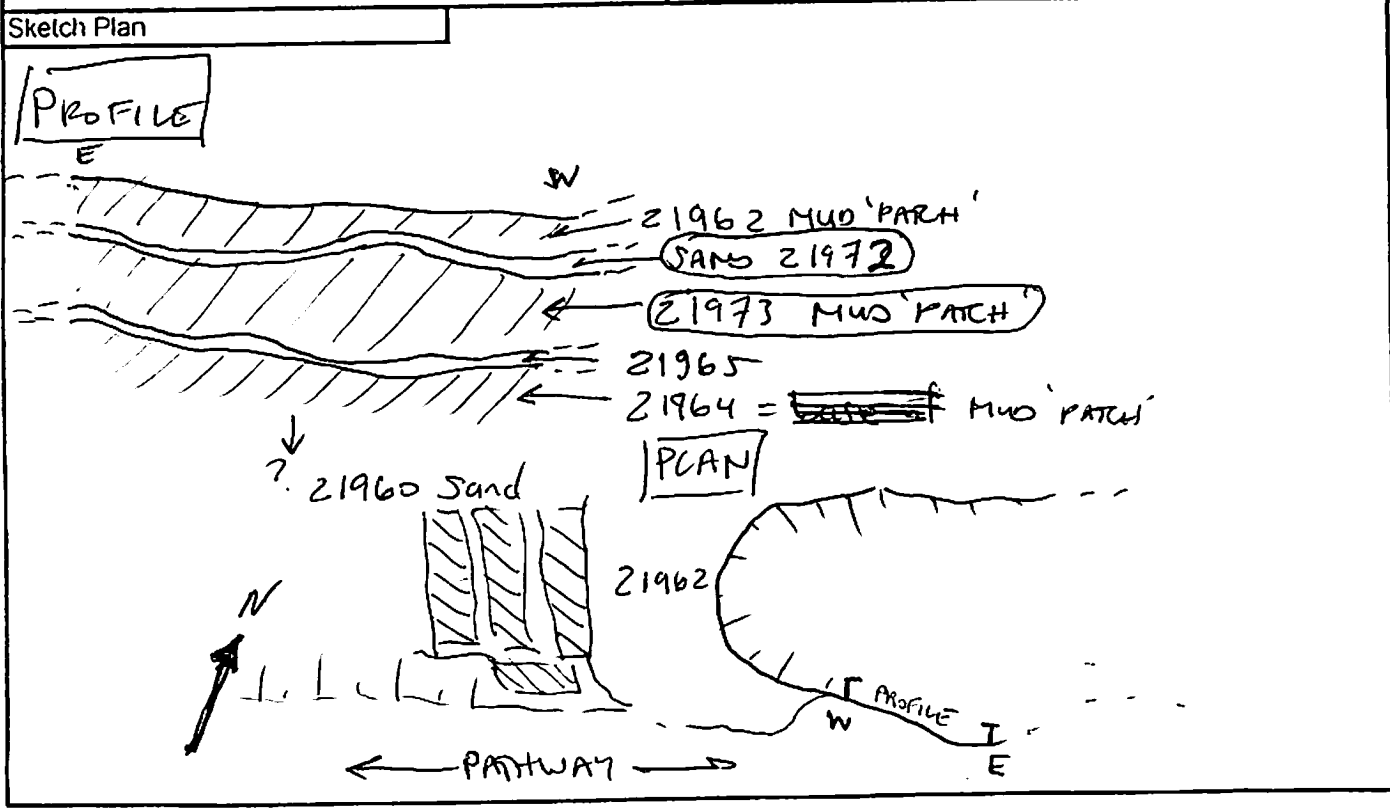 Sketch Plan
PROFILE
E
W
21962 MUD 'PATCH'
SAND 21972
21973 MUD 'PATCH'
21965
21964 = MUD 'PATCH'
?
21960 Sand
PLAN
21962
N
PROFILE
W
E
PATHWAY